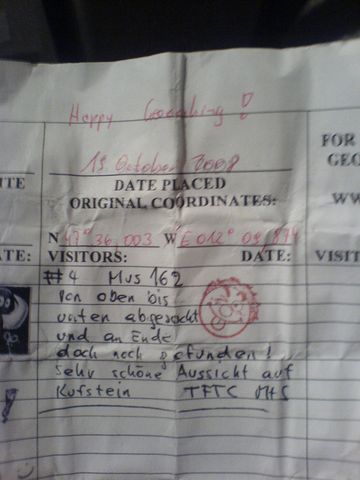 Happy Geocaching!
19. October 2008
FOR
DATE PLACED
GEO
ITE
ORIGINAL COORDINATES:
WW
N 47° 36,003 W E 012° 09,874
TE: VISITORS: DATE: VISIT
#4 Mus 162
Von oben bis
unten abgesucht
und am Ende
doch noch gefunden!
Sehr schöne Aussicht auf
Kufstein TFTC